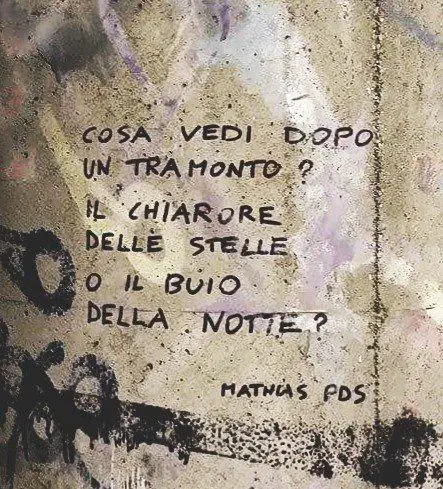 COSA VEDI DOPO
UN TRAMONTO?
IL CHIARORE
DELLE STELLE
O IL BUIO
DELLA NOTTE?
PDS